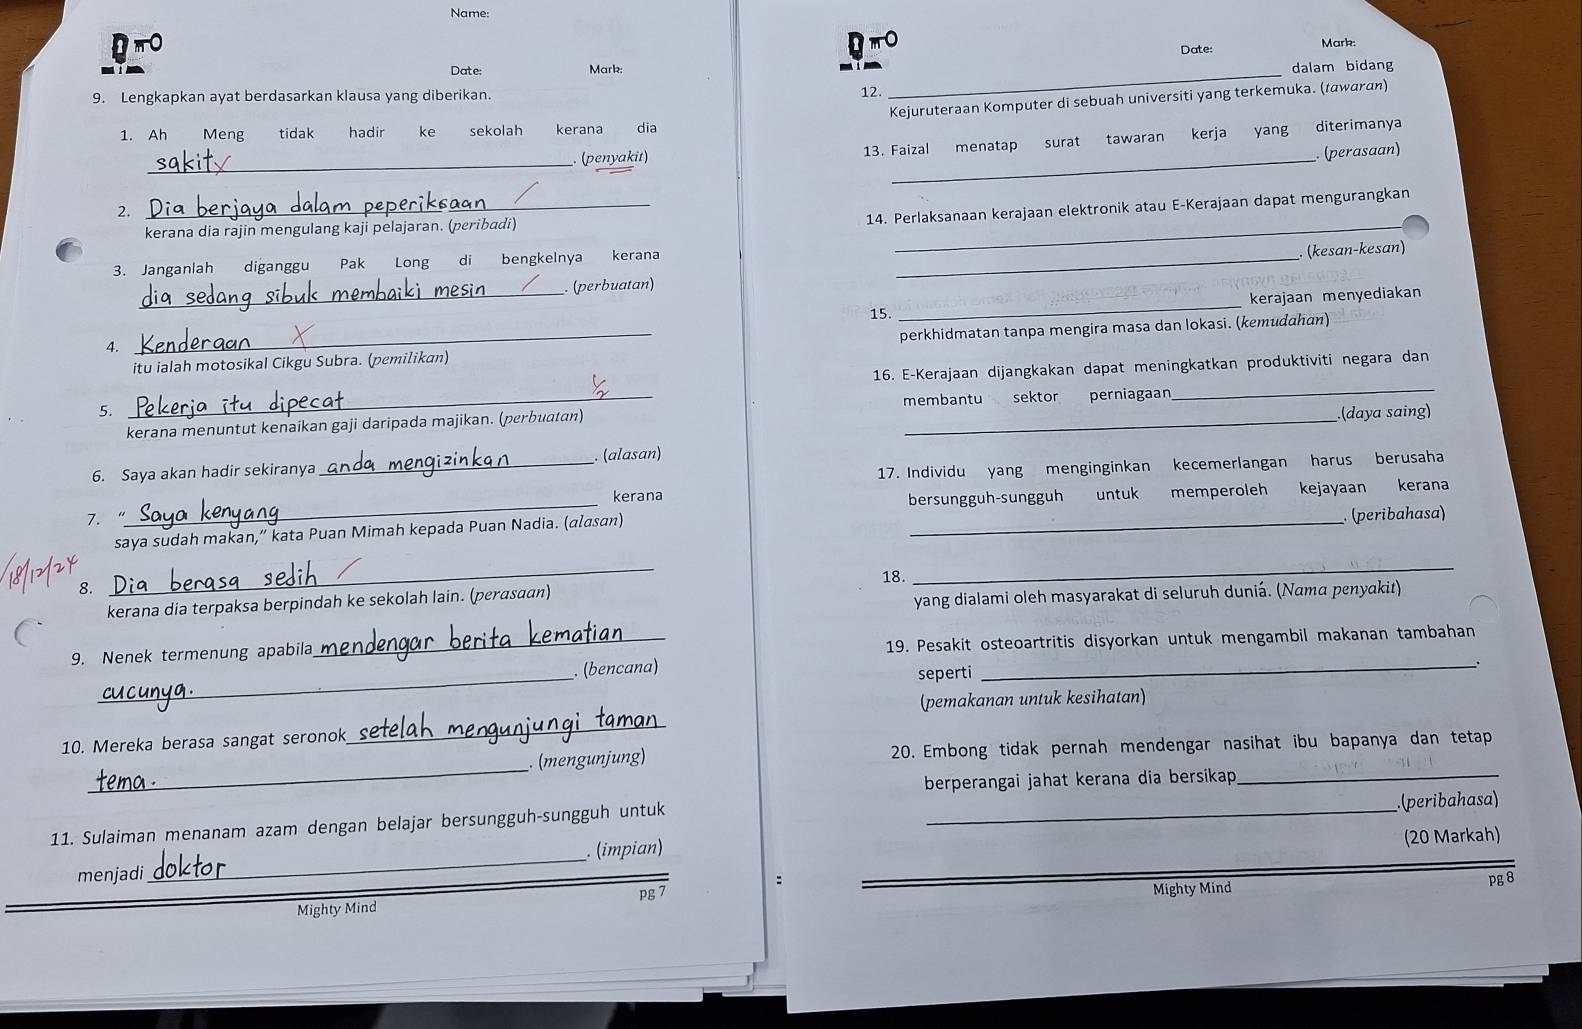 Name:
Date: Mark:
9. Lengkapkan ayat berdasarkan klausa yang diberikan.
1. Ah Meng tidak hadir ke sekolah kerana dia
sakit . (penyakit)
2. Dia berjaya dalam peperiksaan
kerana dia rajin mengulang kaji pelajaran. (peribadi)
3. Janganlah diganggu Pak Long di bengkelnya kerana
dia sedang sibuk membaiki mesin . (perbuatan)
4. Kenderaan
itu ialah motosikal Cikgu Subra. (pemilikan)
5. Pekerja itu dipecat 1/2
kerana menuntut kenaikan gaji daripada majikan. (perbuatan)
6. Saya akan hadir sekiranya anda mengizinkan . (alasan)
7. " Saya kenyang kerana
saya sudah makan," kata Puan Mimah kepada Puan Nadia. (alasan)
18/12/24
8. Dia berasa sedih
kerana dia terpaksa berpindah ke sekolah lain. (perasaan)
9. Nenek termenung apabila mendengar berita kematian
cucunya. . (bencana)
10. Mereka berasa sangat seronok setelah mengunjungi taman
tema. . (mengunjung)
11. Sulaiman menanam azam dengan belajar bersungguh-sungguh untuk
menjadi doktor . (impian)
Mighty Mind pg 7
Date: Mark:
12. dalam bidang
Kejuruteraan Komputer di sebuah universiti yang terkemuka. (tawaran)
13. Faizal menatap surat tawaran kerja yang diterimanya
. (perasaan)
14. Perlaksanaan kerajaan elektronik atau E-Kerajaan dapat mengurangkan
. (kesan-kesan)
15. kerajaan menyediakan
perkhidmatan tanpa mengira masa dan lokasi. (kemudahan)
16. E-Kerajaan dijangkakan dapat meningkatkan produktiviti negara dan
membantu sektor perniagaan
.(daya saing)
17. Individu yang menginginkan kecemerlangan harus berusaha
bersungguh-sungguh untuk memperoleh kejayaan kerana
. (peribahasa)
18.
yang dialami oleh masyarakat di seluruh dunia. (Nama penyakit)
19. Pesakit osteoartritis disyorkan untuk mengambil makanan tambahan
seperti .
(pemakanan untuk kesihatan)
20. Embong tidak pernah mendengar nasihat ibu bapanya dan tetap
berperangai jahat kerana dia bersikap
.(peribahasa)
(20 Markah)
Mighty Mind pg 8